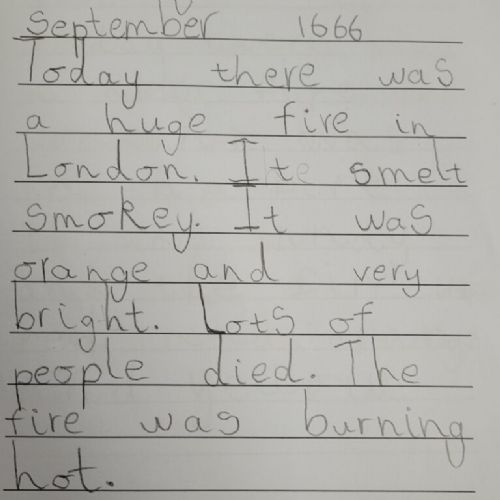 September 1666
Today there was
a huge fire in
London. Ite smelt
smokey. It was
orange and very
bright. Lots of
people died. The
fire was burning
hot.